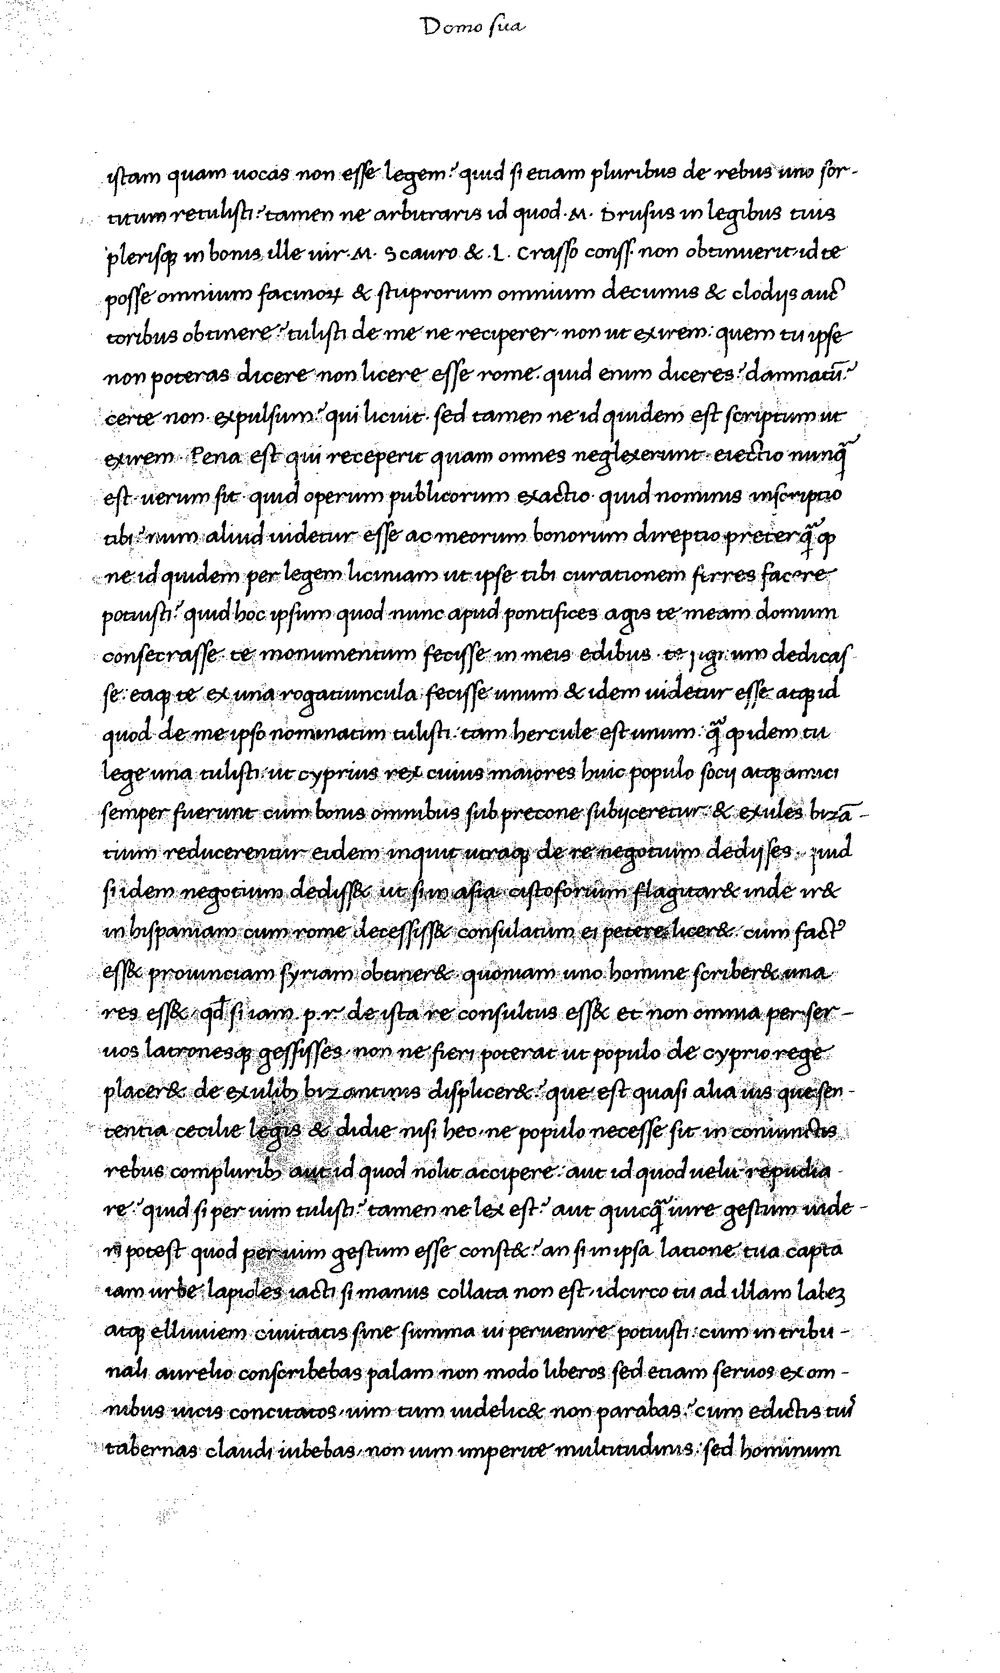 Domo sua
istam quam uocas non esse legem? quid si etiam pluribus de rebus uno sor-
titum retulisti? tamen ne arbitraris id quod .M. Drusus in legibus tuis
plerisq; in bonis ille uir .M. Scauro & .L. Crasso conss. non obtinuerit. id te
posse omnium facinoꝝ & stuprorum omnium decumis & clodijs auc
toribus obtinere? tulisti de me ne reciperer. non ut exirem: quem tu ipse
non poteras dicere non licere esse rome. quid enim diceres? damnatū?
certe non. expulsum? qui licuit. sed tamen ne id quidem est scriptum ut
exirem. Pena est qui receperit quam omnes neglexerunt. eiectio nunq̃
est. uerum sit. quid operum publicorum exactio. quid nominis inscriptio
tibi? num aliud uidetur esse ac meorum bonorum direptio preterq̃ ꝙ
ne id quidem per legem liciniam ut ipse tibi curationem ferres facere
potuisti? quid hoc ipsum quod nunc apud pontifices agis te meam domum
consecrasse. te monumentum fecisse in meis edibus. te dedicas
se. eaq; te ex una rogatiuncula fecisse unum & idem uidetur esse atq; id
quod de me ipso nominatim tulisti. tam hercule est unum. q̃ ꝙ idem tu
lege una tulisti. ut cyprius rex cuius maiores huic populo socij atq; amici
semper fuerunt cum bonis omnibus sub precone subijceretur. & exules bizā-
tium reducerentur eidem inquit utraq; de re negotium dedisses. quid
si idem negotium dediss& ut si in asia cistoforum flagitar& inde ir&
in hispaniam cum rome decessiss& consulatum ei petere licer&. cum factꝰ
ess& prouinciam syriam obtiner&. quoniam uno homine scriber& una
res ess&. qđ si iam .p.r. de ista re consultus ess& et non omnia per ser-
uos latronesq; gessisses. non ne fieri poterat ut populo de cyprio rege
placer& de exulib; bizantinis displicer&? que est quasi alia uis que sen-
tentia cecilie legis & didie nisi hec. ne populo necesse sit in coniunctis
rebus complurib; aut id quod nolit accipere. aut id quod uelit repudia
re? quid si per uim tulisti? tamen ne lex est? aut quicq̃ iure gestum uide-
ri potest quod per uim gestum esse const&? an si in ipsa latione tua capta
iam urbe lapides iacti si manus collata non est. idcirco tu ad illam labeʒ
atq; elluuiem ciuitatis sine summa ui peruenire potuisti. cum in tribu-
nali aurelio conscribebas palam non modo liberos sed etiam seruos ex om-
nibus uicis concitatos. uim tum uidelic& non parabas? cum edictis tuis
tabernas claudi iubebas. non uim imperite multitudinis. sed hominum